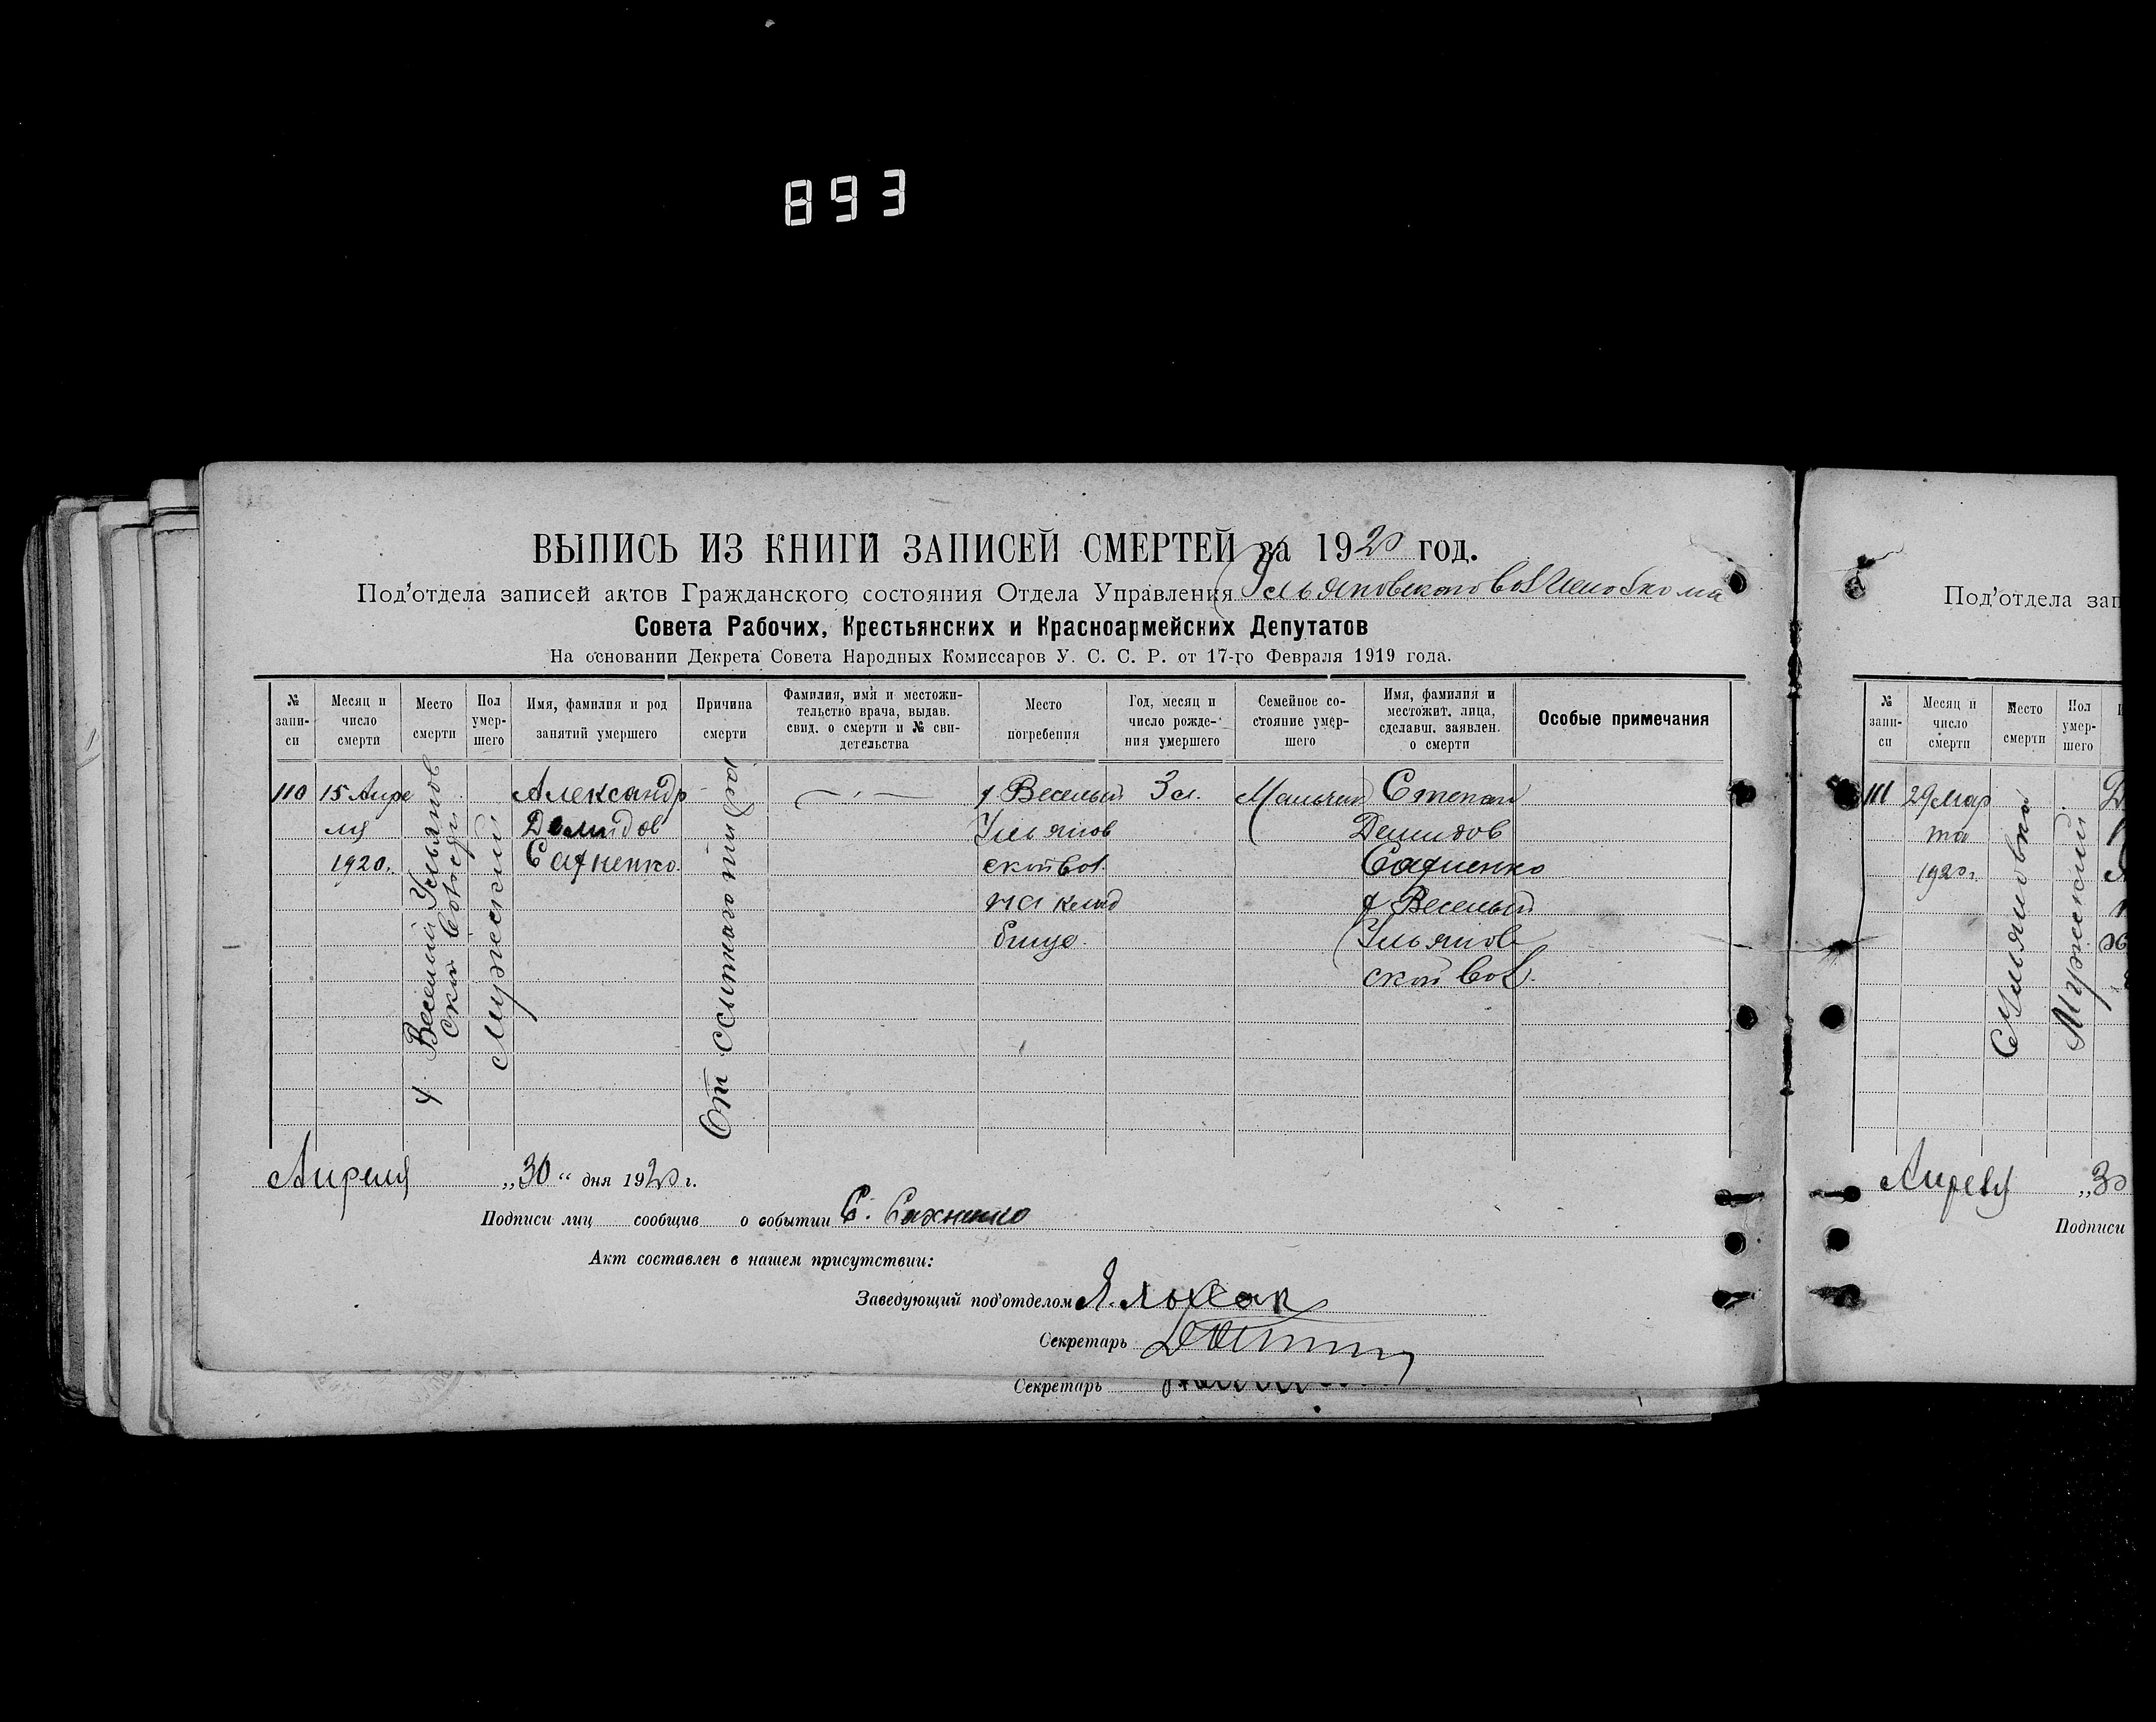 893
ВЫПИСЬ ИЗ КНИГИ ЗАПИСЕЙ СМЕРТЕЙ за 1920 год.
Под'отдела записей актов Гражданского состояния Отдела Управления Ульяновского
Совета Рабочих, Крестьянских и Красноармейских Депутатов
На основании Декрета Совета Народных Комиссаров У. С. С. Р. от 17-го Февраля 1919 года.
№ запи-
си
Месяц и
число
смерти
Место
смерти
Пол
умер-
шего
Имя, фамилия и род
занятий умершего
Причина
смерти
Фамилия, имя и местожи-
тельство врача, выдав.
свид. о смерти и № сви-
детельства
Место
погребения
Год, месяц и
число рожде-
ния умершего
Семейное со-
стояние умер-
шего
Имя, фамилия и
местожит. лица,
сделавш. заявлен.
о смерти
Особые примечания
110
15 Апре
ля
1920.
х Веселый Ульянов
ской волости
Мужский
Александр
Демидов
Сахненко.
От сыпного тифа
х Веселый
Ульянов
ской вол.
на клад
бище.
3 л.
Мальчик
Степан
Демидов
Сахненко
х Веселый
Ульянов
ской вол.
Апреля „30“ дня 1920 г.
Подписи лиц сообщив о событии С. Сахненко
Акт составлен в нашем присутствии:
Заведующий под'отделом
Секретарь
Секретарь
Под'отдела зап
№
запи-
си
Месяц и
число
смерти
Место
смерти
Пол
умер-
шего
111
29 Мар
та
1920 г.
Ульяновка
Мужский
Апреля „30
Подписи